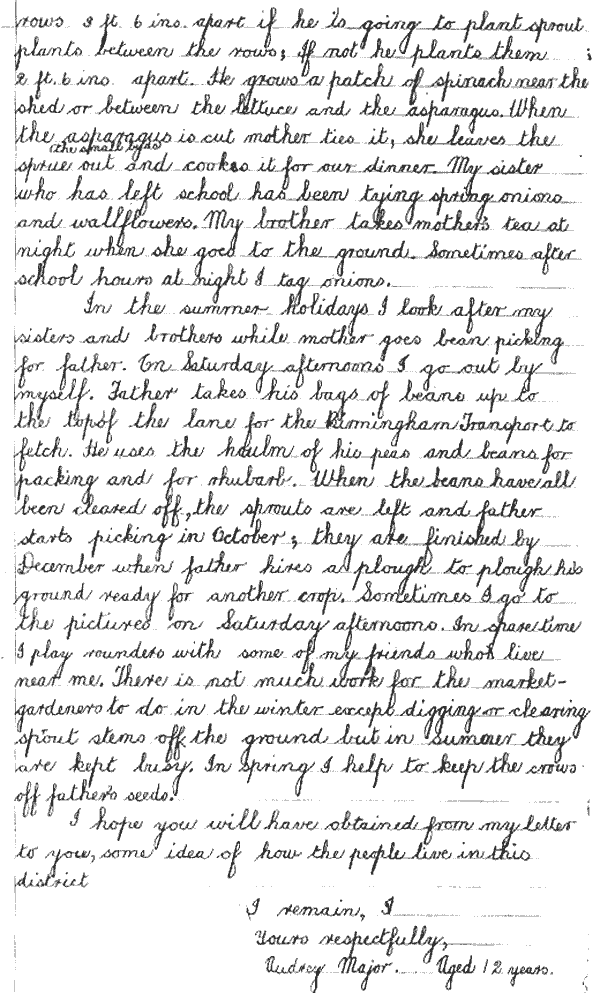 rows 3 ft. 6 ins. apart if he is going to plant sprout
plants between the rows; If not he plants them
2 ft. 6 ins apart. He grows a patch of spinach near the
shed or between the lettuce and the asparagus. When
the asparagus is cut mother ties it, she leaves the
(the small bits)
sprue out and cooks it for our dinner. My sister
who has left school has been tying spring onions
and wallflowers. My brother takes mothers tea at
night when she goes to the ground. Sometimes after
school hours at night I tag onions.
In the summer holidays I look after my
sisters and brothers while mother goes bean picking
for father. On Saturday afternoons I go out by
myself. Father takes his bags of beans up to
the top of the lane for the Birmingham Transport to
fetch. He uses the haulm of his peas and beans for
packing and for rhubarb. When the beans have all
been cleared off, the sprouts are left and father
starts picking in October; they are finished by
December when father hires a plough to plough his
ground ready for another crop. Sometimes I go to
the pictures on Saturday afternoons. In spare time
I play rounders with some of my friends who live
near me. There is not much work for the market-
gardeners to do in the winter except digging or clearing
sprout stems off the ground but in summer they
are kept busy. In spring I help to keep the crows
off fathers seeds.
I hope you will have obtained from my letter
to you, some idea of how the people live in this
district
I remain, I
Yours respectfully,
Audrey Major. Aged 12 years.